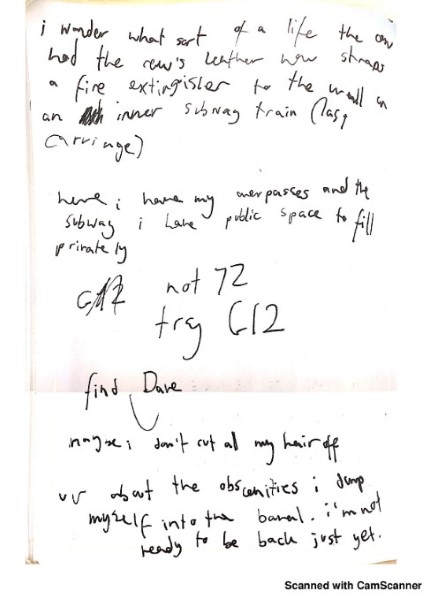 i wonder what sort of a life the cow
had the cow's leather now straps
a fire extingisher to the wall in
an inner subway train (last
carriage)
here i have my overpasses and the
subway i have public space to fill
privately
not 72
try G12
find Dave
maybe i don't cut all my hair off
about the obscenities i dump
myself into the banal. i'm not
ready to be back just yet.
Scanned with CamScanner